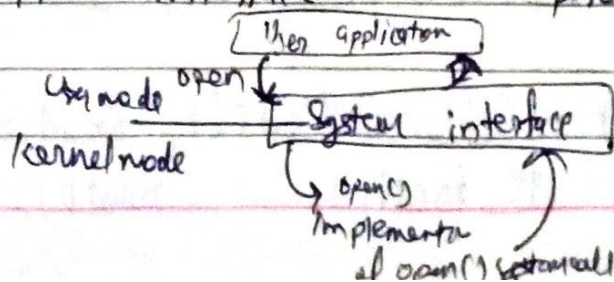 User application
open
User mode
System interface
kernel mode
open()
implementa
of open() system call